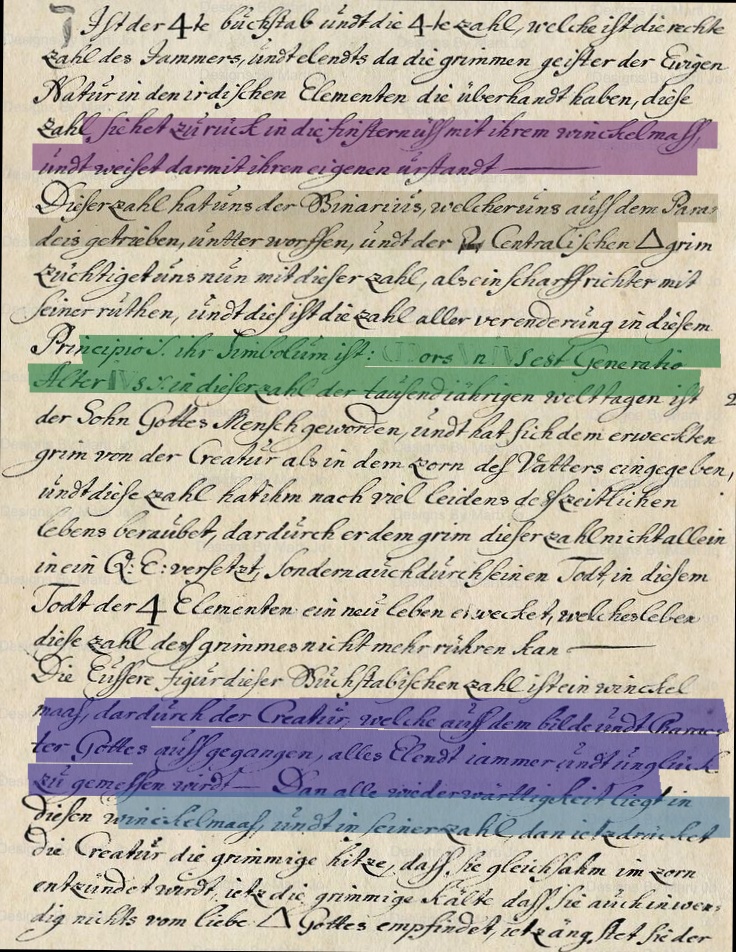 Ist der 4te büchstab ündt die 4te zahl, welche ist die rechte
zahl des Jammers, ündt elendts da die grimmen geister der Ewigen
Natür in den irdischen Elementen die überhandt haben, diese
zahl siehet zü rück in die finsternüß mit ihrem winckelmaß,
ündt weiset darmit ihren eigenen ürstandt —
Dieser zahl hat üns der Binariüs, welcher üns auß dem Para-
deis getrieben, üntter worffen, ündt der Centralischen △ grim
züchtiget üns nün mit dieser zahl, als ein scharffrichter mit
seiner rüthen, ündt dies ist die zahl aller verenderüng in diesem
Principio S. ihr Simbolüm ist: Mors est Generatio
Alter s S. in dieser zahl der taüsendjährigen welttagen ist
der Sohn Gottes Mensch geworden, ündt hat sich dem erweckten
grim von der Creatür als in dem zorn deß Vatters eingegeben,
ündt diese zahl hat ihm nach viel leidens deß zeitlichen
lebens beraübet, dardürch er dem grim dieser zahl nicht allein
in ein Q: E: versetzt, sondern aüch dürch seinen Todt, in diesem
Todt der 4 Elementen ein neü leben erwecket, welches leben
diese zahl deß grimmes nicht mehr rühren kan —
Die Eüssere figür dieser Büchstabischen zahl ist ein winckel
maas, dardürch der Creatür, welche auß dem bilde ündt Charac-
ter Gottes auß gegangen, alles Elendt iammer ündt unglück
zü gemessen wirdt — Dan alle wiederwärttigkeit liegt in
diesen winckelmaas, ündt in seiner zahl, dan ietz drücket
die Creatür die grimmige hitze, daß sie gleichsahm im zorn
entzündet wirdt, ietz die grimmige Kälte daß sie aüch inwen-
dig nichts vom liebe △ Gottes empfindet, ietz ängstet sie der